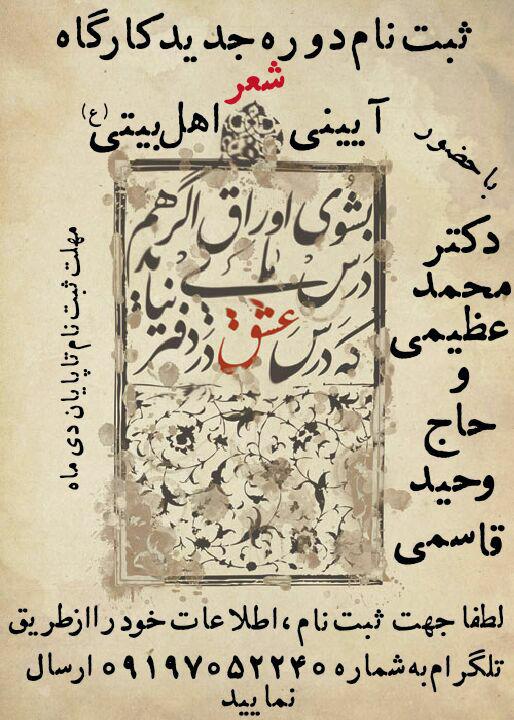 ثبت نام دوره جدید کارگاه
شعر
آیینی اهل بیتی (ع)
با حضور
دکتر
محمد
عظیمی
و
حاج
وحید
قاسمی
بشوی اوراق اگر هم
درس مایی
که درس عشق در دفتر نیاید
مهلت ثبت نام تا پایان دی ماه
لطفا جهت ثبت نام ،اطلاعات خود را از طریق
تلگرام به شماره ۰۹۱۹۷۰۵۲۲۴۰ ارسال
نمایید